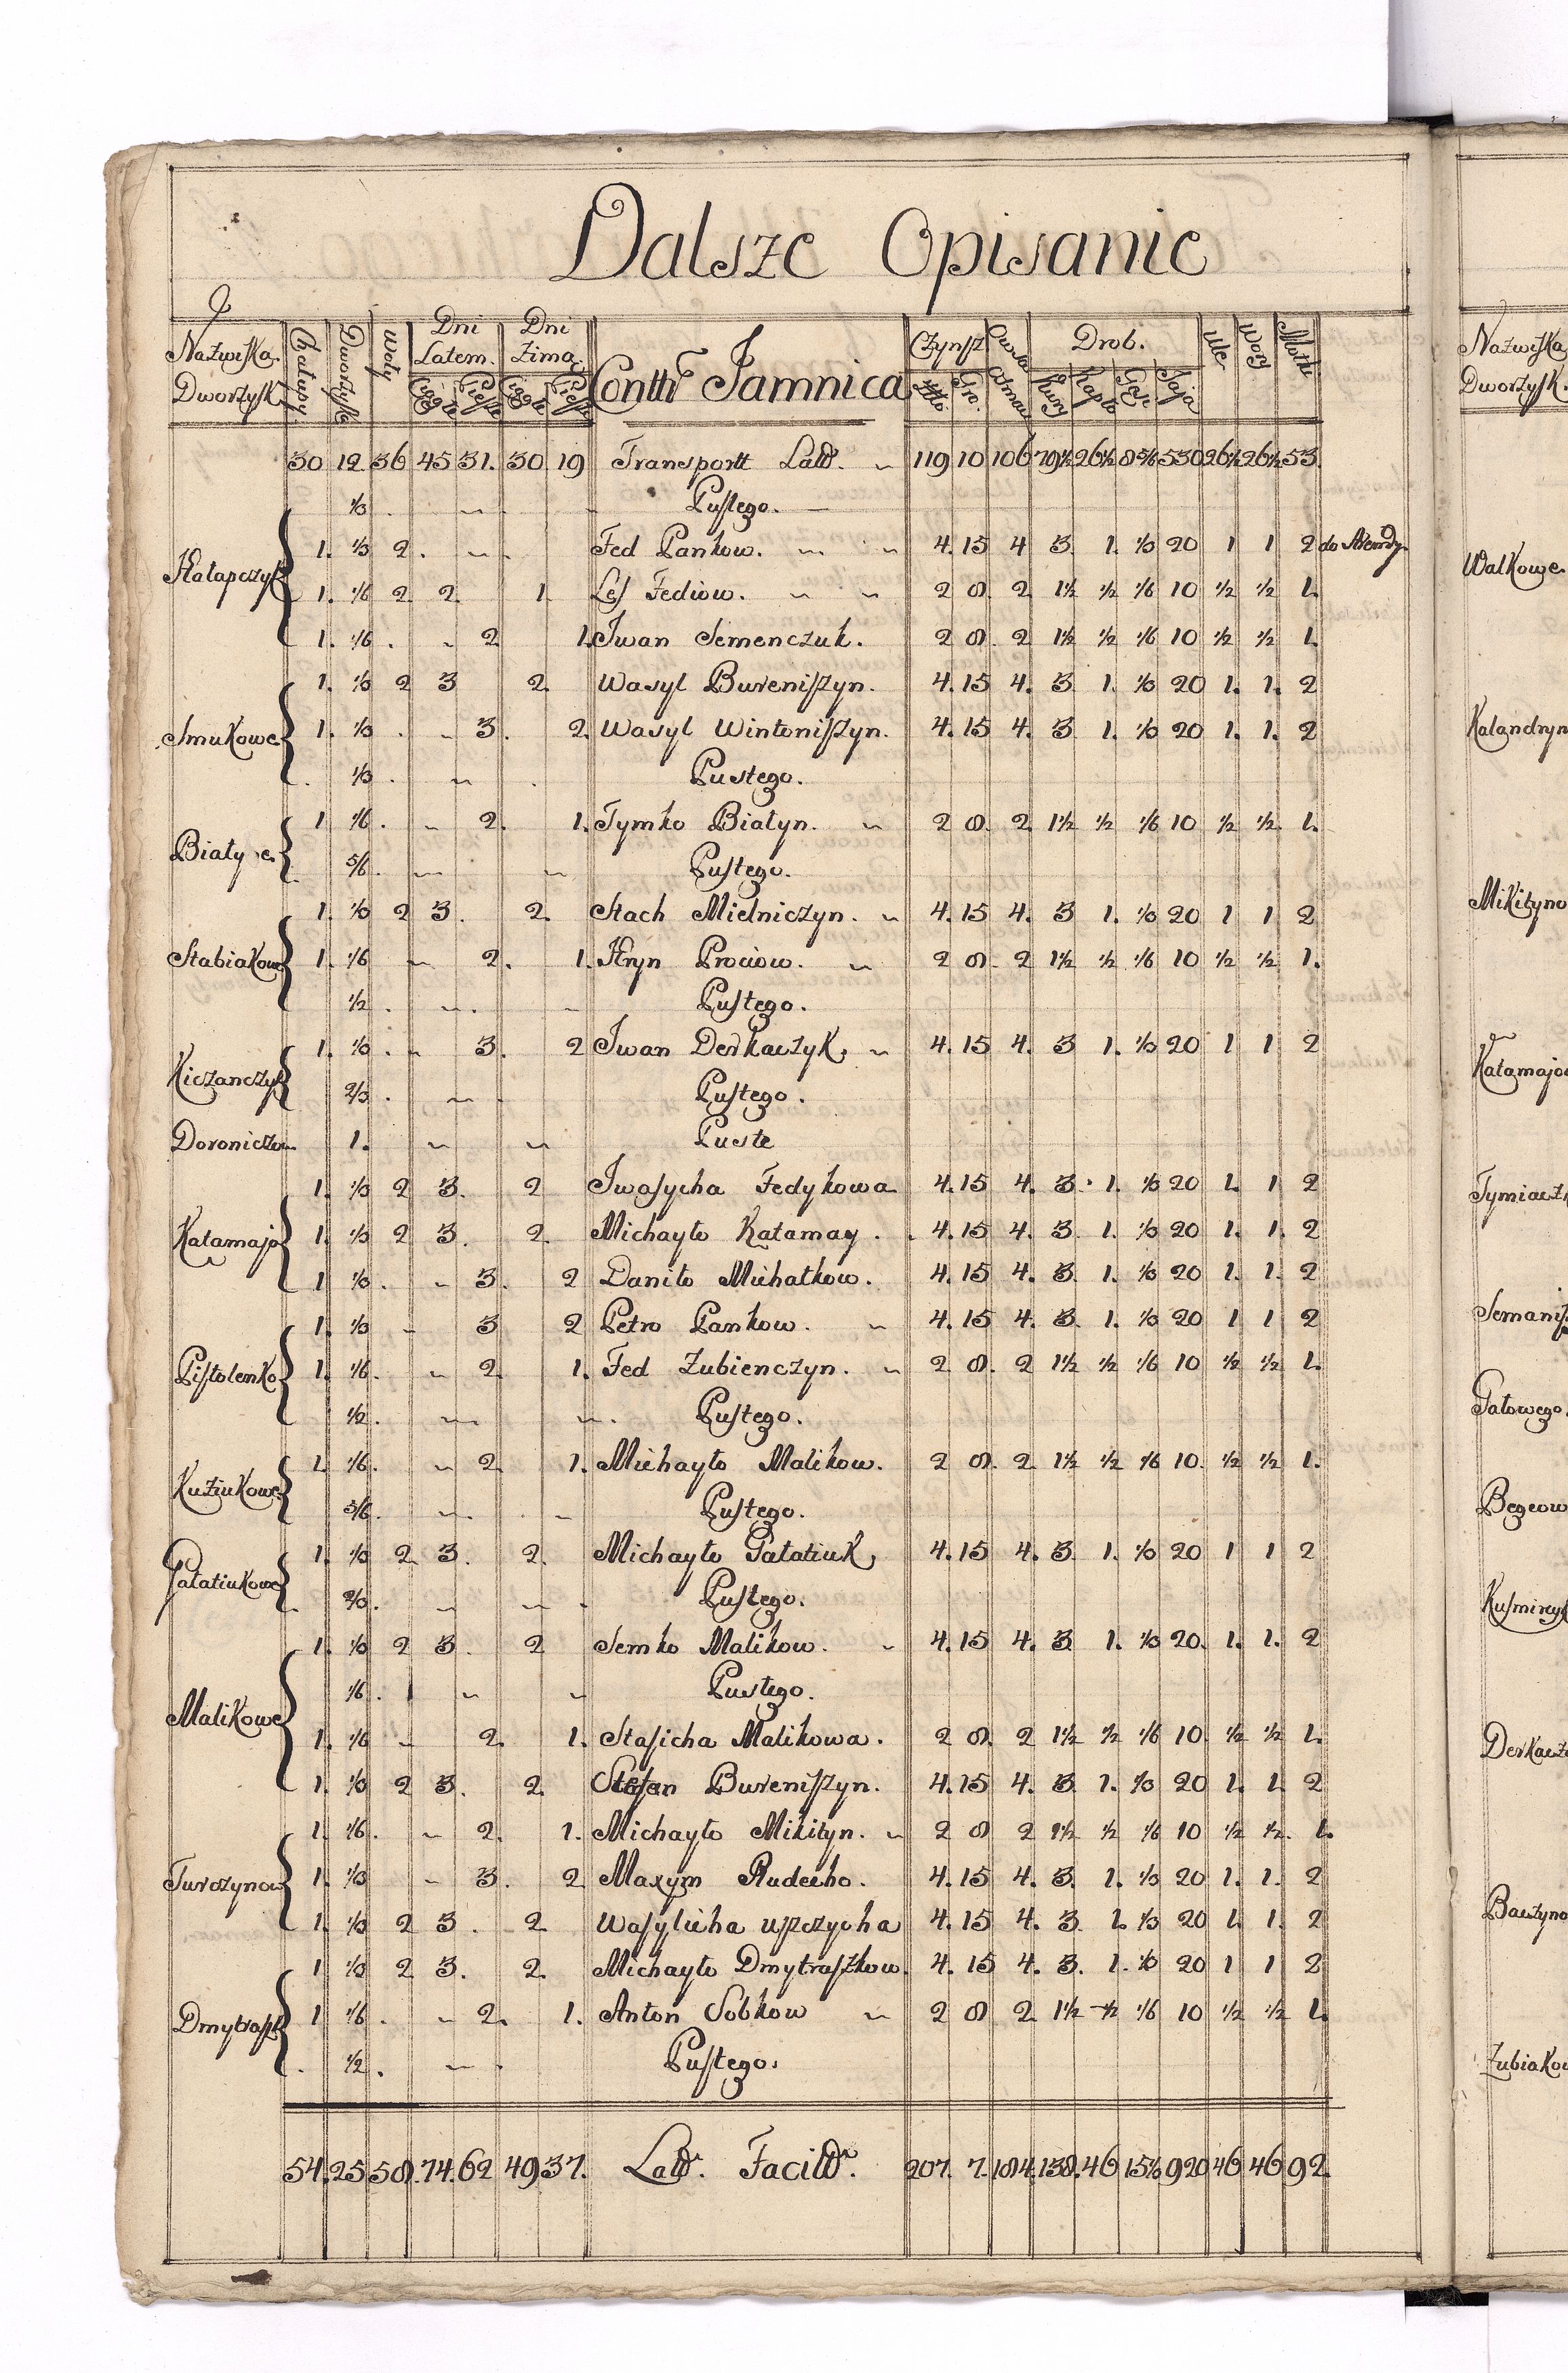 Dalsze Opisanie
Nazwiska Dworzysk. Chałupy Dworzyska Woły Dni Latem. Ciągłe Piesze Dni Zimą Ciągłe Piesze Contt Jamnica Czynsz Zło. Gr. Owsa Drob. Kury Kapło Gęsi Jaja Ule Wozy Motki
30 12 36 45 31. 30 19 Transportt Latt. 119 10 106 79½ 26½ 8 5/6 530 26½ 26½ 53
⅓ Pustego.
Hałapczyk 1. ⅓ 2. Fed Pankow. 4. 15 4 3 1. ⅓ 20 1 1 2
1. 1/6 2 2 1 Les Fediow. 2 8 2 1½ ½ 1/6 10 ½ ½ 1.
1. 1/6 2 1. Iwan Semenczuk. 2 8 2 1½ ½ 1/6 10 ½ ½ 1.
1. ⅓ 2 3 2. Wasyl Bureniszyn. 4. 15 4. 3 1. ⅓ 20 1. 1. 2
Smukowe 1. ⅓ 3. 2. Wasyl Wintoniszyn. 4. 15 4. 3 1. ⅓ 20 1. 1. 2
⅓ Pustego.
1 1/6 2. 1. Tymko Białyn. 2 8. 2 1½ ½ 1/6 10 ½ ½ 1.
5/6 Pustego.
1. ⅓ 2 3. 2. Stach Mielniczyn. 4. 15 4. 3 1. ⅓ 20 1 1 2
Stabiakowe 1. 1/6 2. 1. Hryn Prociow. 2 8. 2 1½ ½ 1/6 10 ½ ½ 1.
½ Pustego.
1. ⅓ 3. 2 Iwan Derkaczyk 4. 15 4. 3 1. ⅓ 20 1 1 2
Kiczanczyk ⅔ Pustego.
1. Puste
1. ⅓ 2 3. 2 Iwasycha Fedykowa 4. 15 4. 3. 1. ⅓ 20 1. 1 2
Katamaja 1. ⅓ 2 3. 2. Michayło Katamay. 4. 15 4. 3 1. ⅓ 20 1. 1. 2
1 ⅓ 3. 2 Daniło Michatkow. 4. 15 4. 3. 1. ⅓ 20 1. 1. 2
1. ⅓ 3 2 Petro Pankow. 4. 15 4. 3. 1. ⅓ 20 1 1 2
Pistolenko 1. 1/6 2. 1. Fed Zubienczyn. 2 8. 2 1½ ½ 1/6 10 ½ ½ 1.
½ Pustego.
Kuziukowe 1. 1/6 2. 1. Michayło Malikow. 2 8. 2 1½ ½ 1/6 10. ½ ½ 1.
5/6 Pustego.
Gałatiukowe 1. ⅓ 2 3. 2. Michayło Gałatiuk 4. 15 4. 3. 1. ⅓ 20 1 1 2
⅔ Pustego.
1. ⅓ 2 3. 2 Semko Malikow. 4. 15 4. 3. 1. ⅓ 20. 1. 1. 2
1/6 Pustego.
Malikowe 1. 1/6 2. 1. Stasicha Malikowa. 2 8. 2 1½ ½ 1/6 10. ½ ½ 1.
1. ⅓ 2 3. 2. Stefan Bureniszyn. 4. 15 4. 3. 1. ⅓ 20 1. 1. 2
1. 1/6 2. 1. Michayło Mikityn. 2 8 2 1½ ½ 1/6 10 ½ ½. 1.
Turczynow 1. ⅓ 3. 2 Maxym Rudeeko. 4. 15 4. 3. 1. ⅓ 20 1. 1. 2
1. ⅓ 2 3. 2. 4. 15 4. 3. 1. ⅓ 20 1. 1. 2
1 ⅓ 2 3. 2. Michayło Dmytraszkow. 4. 15 4. 3. 1. ⅓ 20 1 1 2
Dmytraszk 1 1/6 2. 1. Anton Sobkow 2 8 2 1½ ½ 1/6 10 ½ ½ 1.
½. Pustego.
54. 25 58. 74. 62 49 37. Latt. Facitt. 207. 7. 184. 138. 46 15⅓ 920 46 46 92.
Nazwiska
Dworzysk.
Walkowe
Kalandryn
Mikityno
Katamajo
Tymiacz
Semanis
Gatowego.
Derkacz
Baczyno
Zubiakow